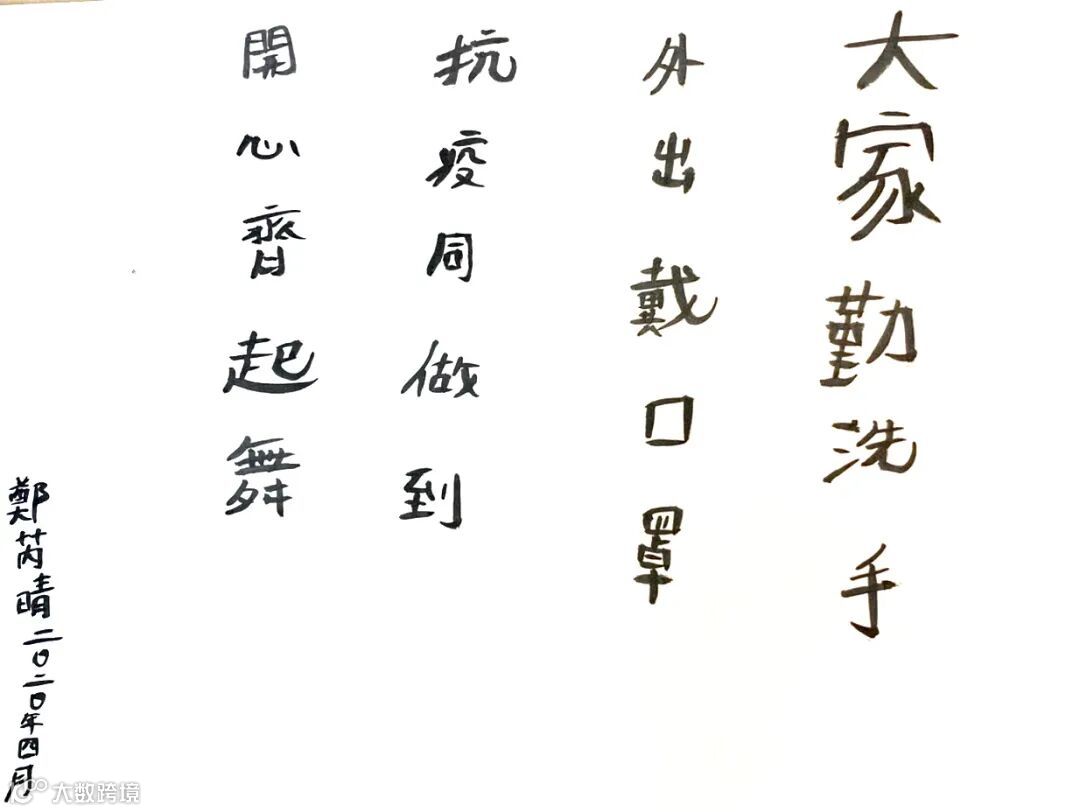 大家勤洗手
外出戴口罩
抗疫同做到
開心齊起舞
鄭芮晴二〇二〇年四月
大数跨境